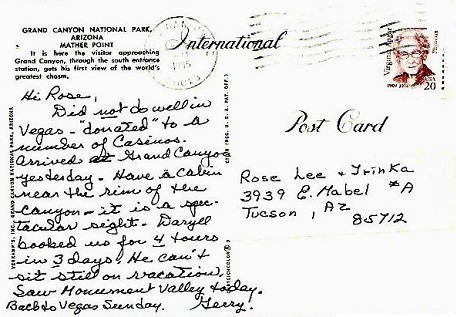 GRAND CANYON NATIONAL PARK,
ARIZONA
MATHER POINT
It is here the visitor approaching
Grand Canyon, through the south entrance
station, gets his first view of the world's
greatest chasm.
International
Post Card
Virginia Apgar
Physician
1909 1974
20
Hi Rose,
Did not do well in
Vegas - "donated" to a
number of Casinos.
Arrived at Grand Canyon
yesterday. Have a cabin
near the rim of the
Canyon - it is a spec-
tacular sight. Daryll
booked us for 4 tours
in 3 days. He can't
sit still on vacation.
Saw Monument Valley today.
Back to Vegas Sunday. Gerry.
Rose Lee + Trinka
3939 E. Mabel #A
Tucson, AZ
85712
VERKAMP'S, INC., GRAND CANYON NATIONAL PARK, ARIZONA